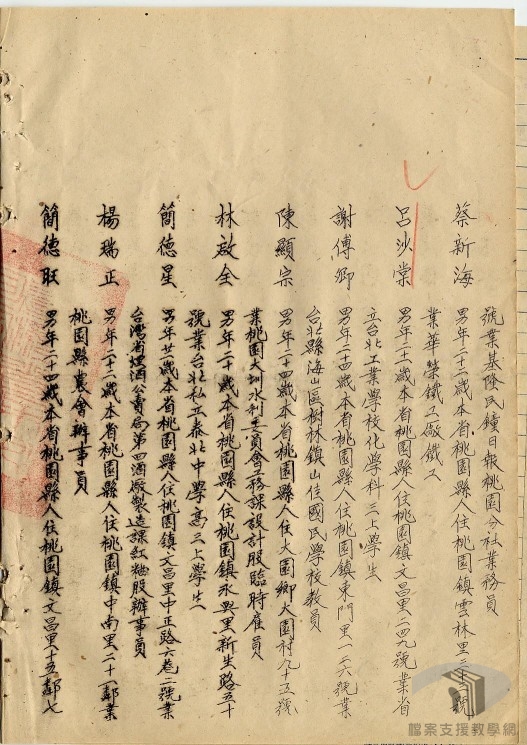 號業基隆民鐘日報桃園分社業務員
蔡新海 男年二十二歲本省桃園縣人住桃園鎮雲林里三十號
業華榮鐵工廠鐵工
呂沙棠 男年二十二歲本省桃園縣人住桃園鎮文昌里二四九號業省
立台北工業學校化學科三上學生
謝傅鄉 男年二十四歲本省桃園縣人住桃園鎮東門里一二六號業
台北縣海山區樹林鎮山佳國民學校教員
陳顯宗 男年二十四歲本省桃園縣人住大園鄉大園村九十五號
業桃園大圳水利委員會工務課設計股臨時雇員
林啟全 男年二十歲本省桃園縣人住桃園鎮永興里新生路五十
號業台北私立泰北中學高三上學生
簡德星 男年廿二歲本省桃園縣人住桃園鎮文昌里中正路六巷二號業
台灣省煙酒公賣局第四酒廠製造課紅糀股辦事員
楊瑞正 男年二十三歲本省桃園縣人住桃園鎮中南里二十一鄰業
桃園縣農會辦事員
簡德旺 男年二十四歲本省桃園縣人住桃園鎮文昌里十五鄰七
檔案支援教學網